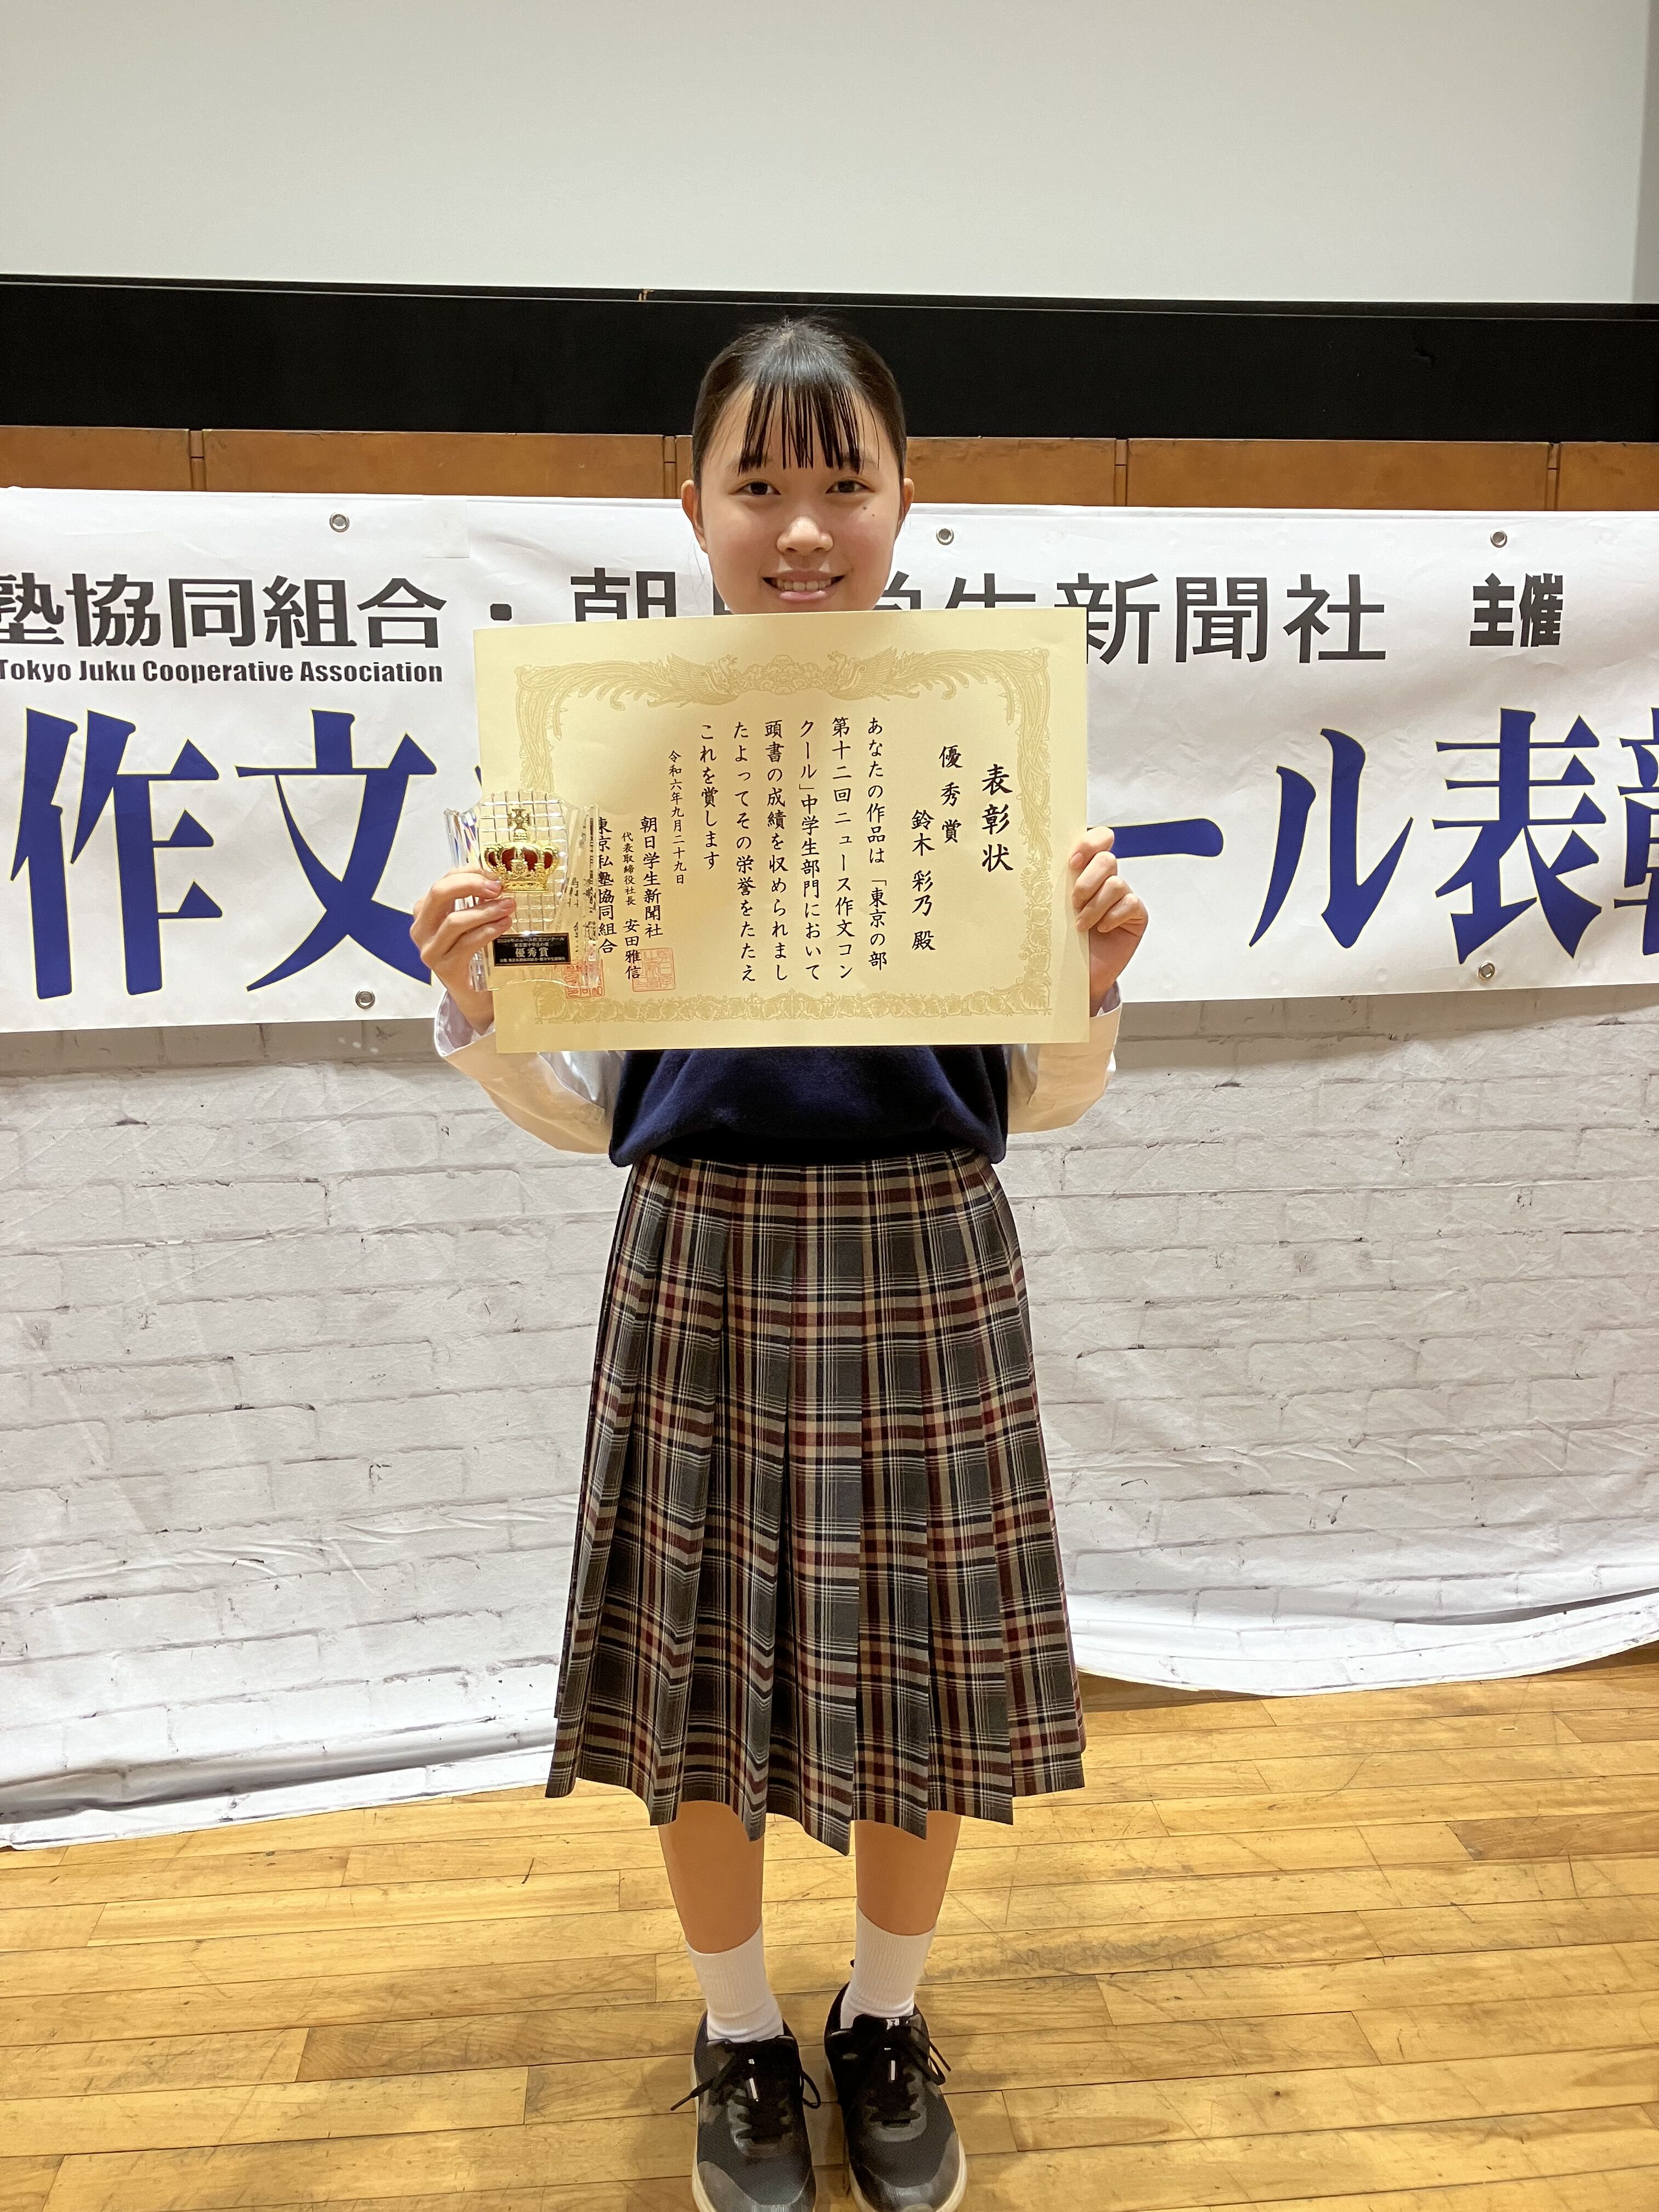 塾協同組合・朝日学生新聞社 主催
Tokyo Juku Cooperative Association
作文
ール表彰
表彰状
優秀賞
鈴木彩乃 殿
あなたの作品は「東京の部
第十二回ニュース作文コン
クール」中学生部門において
頭書の成績を収められまし
たよってその栄誉をたたえ
これを賞します
令和六年九月二十九日
朝日学生新聞社
代表取締役社長 安田雅信
東京私塾協同組合
優秀賞